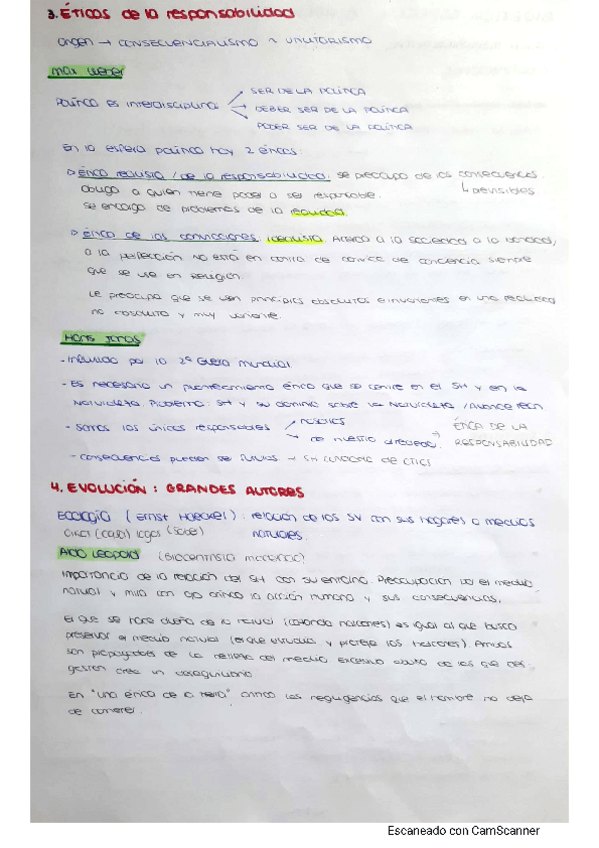 3. ÉTICAS de la responsabilidad
origen → CONSECUENCIALISMO ~ UTILITARISMO
MAX WEBER
POLÍTICA ES interdisciplinar
SER DE LA POLÍTICA
DEBER SER DE LA POLÍTICA
PODER SER DE LA POLÍTICA
En la esfera política hay 2 éticas:
Ética realista / de la responsabilidad: se preocupa de las consecuencias.
obliga a quien tiene poder a ser responsable.
↳ previsibles
se encarga de problemas de la realidad
Ética de las convicciones. idealista. a la sociedad a la
a la perfección no está en contra de de conciencia siempre
que se use en Religión.
Le preocupa que se usen principios absolutos e invariantes en una realidad
no absoluta y muy variante.
HANS JONAS
- Influido por la 2ª Guerra Mundial
- Es necesario un planteamiento ético que se centre en el SH y en la
Naturaleza. Problema: SH y su dominio sobre la Naturaleza / Avance tecn
- somos los únicos responsables
nosotros
de nuestro alrededor
→ ÉTICA DE LA
RESPONSABILIDAD
- consecuencias pueden ser futuras →
4. EVOLUCIÓN: GRANDES AUTORES
Ecología (Ernst Haeckel): relación de los SV con sus hogares o medios
(casa) logos naturales.
Aldo Leopold (Biocentrista moderado)
Importancia de la relación del SH con su entorno. Preocupación por el medio
natural y mira con ojo crítico la acción humana y sus consecuencias.
El que se hace dueño de lo natural (cazando halcones) es igual al que busca
preservar el medio natural (el que visualiza y protege los halcones). Ambos
son de la del medio excesivo abuso de los que
gestión crea un desequilibrio
En "una ética de la tierra" critica las negligencias que el hombre no deja
de cometer.
Escaneado con CamScanner